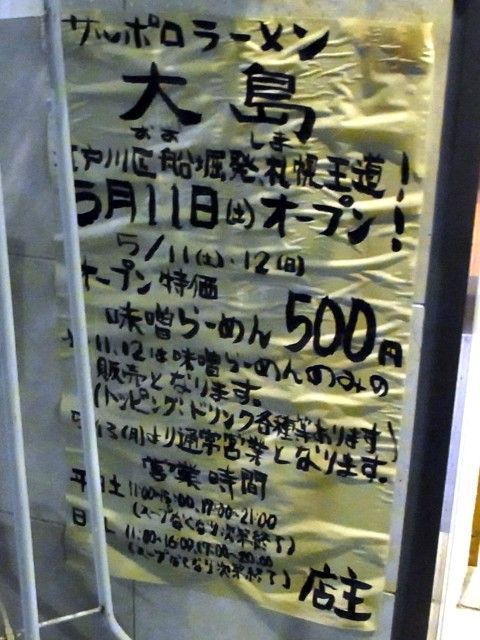 サッポロラーメン
大島
おお しま
江戸川区船堀発、札幌王道!
5月11日(土)オープン!
5/11(土)・12(日)
オープン特価
味噌らーめん500円
11.12は味噌らーめんのみの
販売となります。
(トッピング・ドリンク各種等あります)
5/13(月)より通常営業となります。
営業時間
平日土 11:00~15:00、17:00~21:00
(スープなくなり次第終了)
日 11:00~16:00、17:00~20:00
(スープなくなり次第終了)
店主